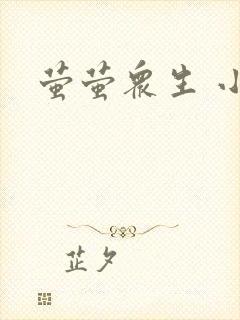 萤萤众生 小
芷夕